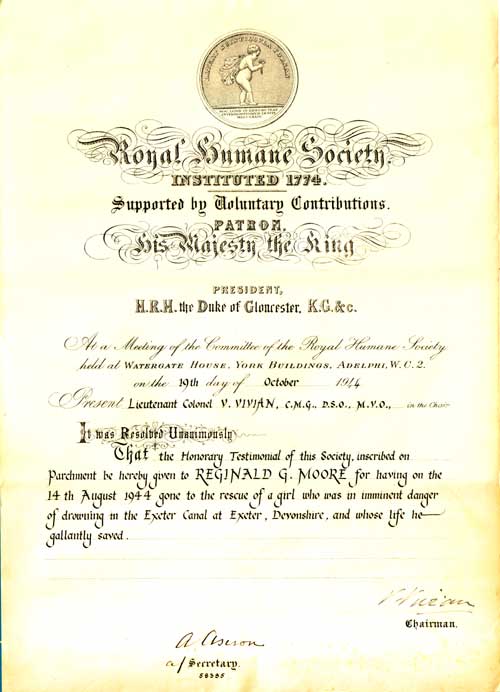 LATEAT SCINTILLVLA FORSAN
Royal Humane Society.
INSTITUTED 1774.
Supported by Voluntary Contributions.
PATRON,
His Majesty the King
PRESIDENT,
H.R.H. the Duke of Gloucester, K.G. &c.
At a Meeting of the Committee of the Royal Humane Society
held at WATERGATE HOUSE, YORK BUILDINGS, ADELPHI, W.C.2.
on the 19th day of October 1944
Present Lieutenant Colonel V. VIVIAN, C.M.G., D.S.O., M.V.O., in the Chair
It was Resolved Unanimously
That the Honorary Testimonial of this Society, inscribed on
Parchment be hereby given to REGINALD G. MOORE for having on the
14th August 1944 gone to the rescue of a girl who was in imminent danger
of drowning in the Exeter Canal at Exeter, Devonshire, and whose life he
gallantly saved.
V Vivian
Chairman.
a/ Secretary.
58385